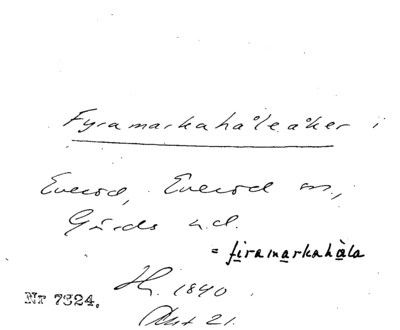 Fyramarkahåleåker i
Everöd, Everöd sn,
Gärds hd.
= firamarkahåla
Hs. 1840
Nr 7324.
Akt 21.